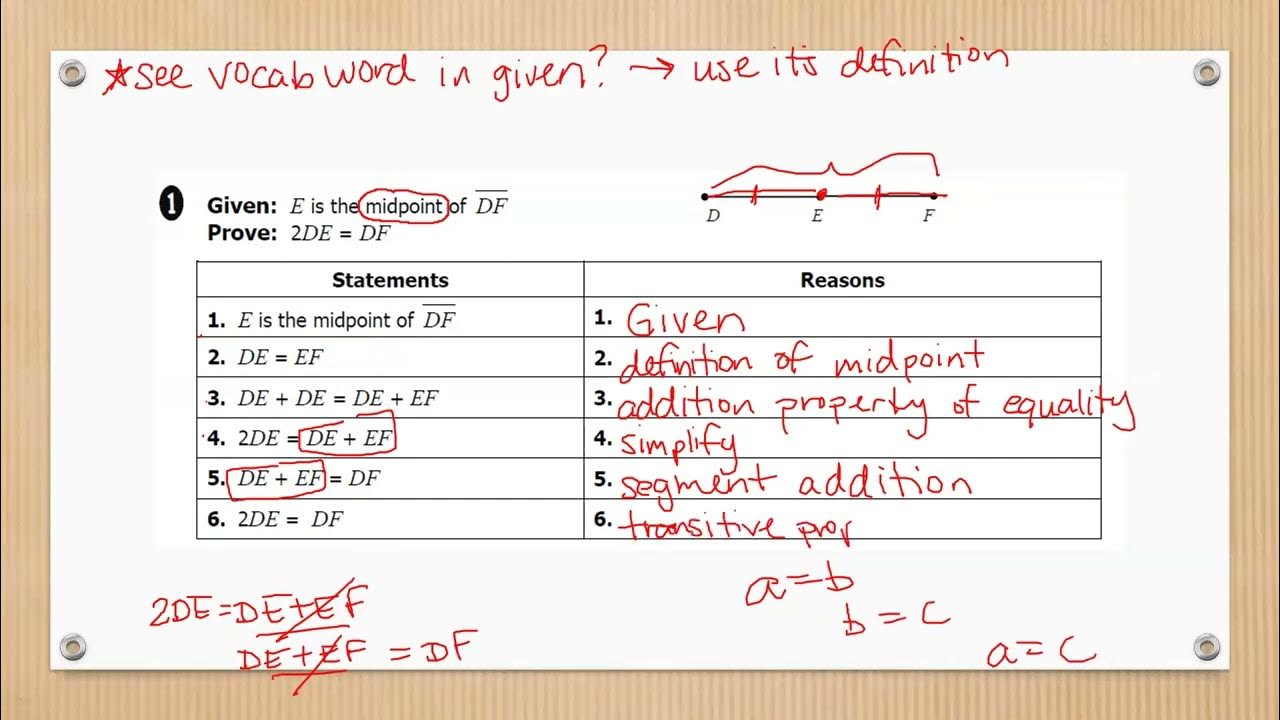 ★see vocab word in given? → use its definition
1 Given: E is the midpoint of DF
Prove: 2DE = DF
D E F
Statements Reasons
1. E is the midpoint of DF 1. Given
2. DE = EF 2. definition of midpoint
3. DE + DE = DE + EF 3. addition property of equality
4. 2DE = DE + EF 4. simplify
5. DE + EF = DF 5. segment addition
6. 2DE = DF 6. transitive prop
a=b
2DE=DE+EF
b = c
DE+EF = DF
a=c